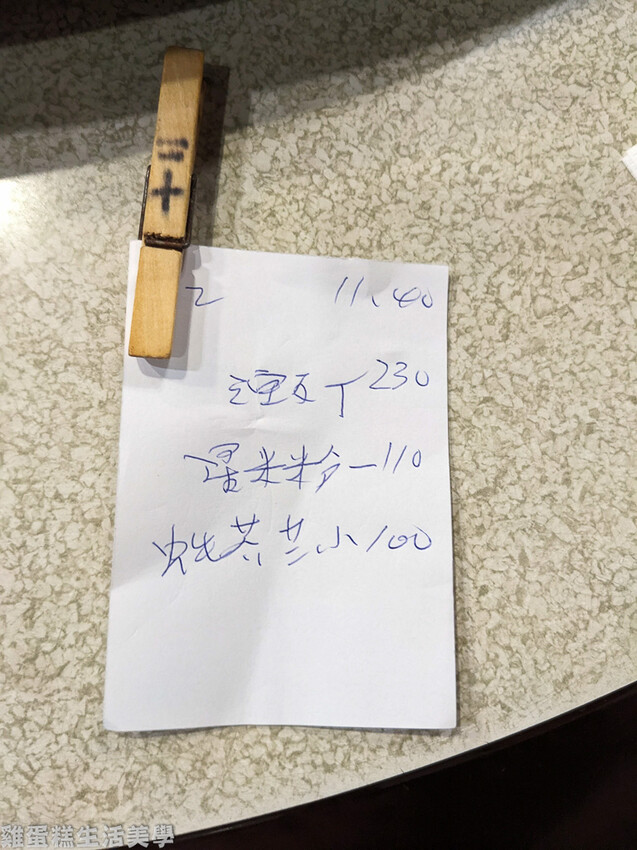 三十
2 11、40
230
星米粉一110
蚝芥兰小100
雞蛋糕生活美學